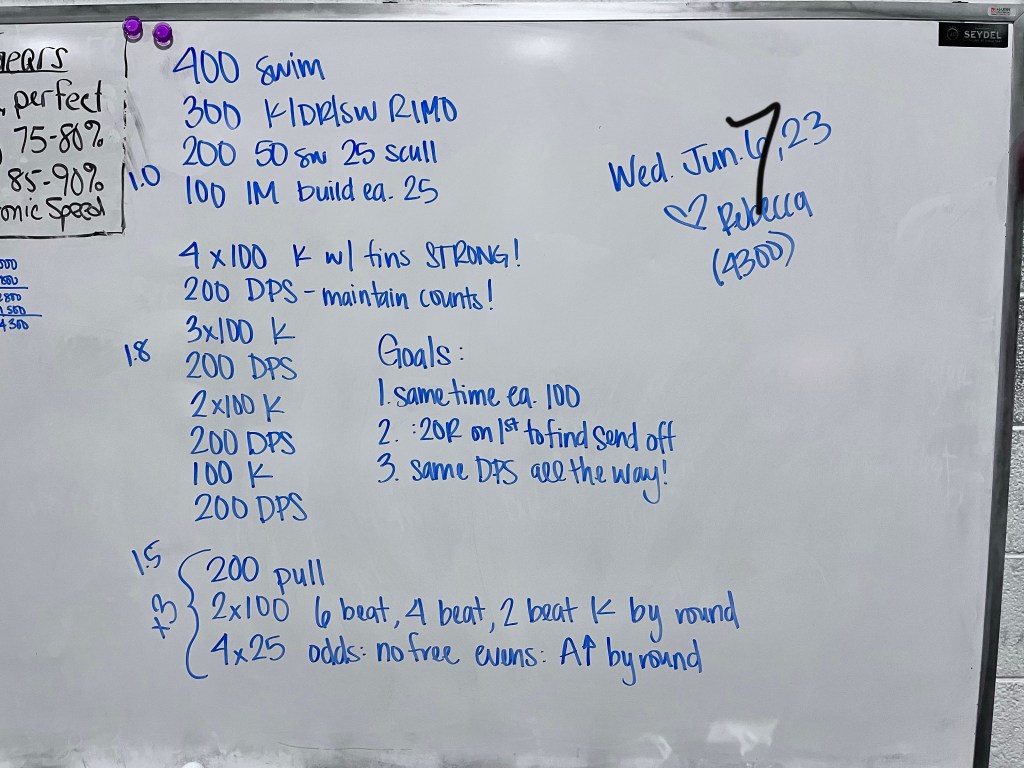 SEYDEL
perfect
75-80%
85-90%
Speed
400 swim
300 K/DR/SW RIMO
200 50 sw 25 scull
1.0
100 IM build ea. 25
Wed. Jun. 6, 23
7
♡ Rebecca
(4300)
4x100 K w/ fins STRONG!
200 DPS - maintain counts!
3x100 K
1.8
200 DPS
2x100 K
200 DPS
100 K
200 DPS
Goals:
1. same time ea. 100
2. :20R on 1st to find send off
3. same DPS all the way!
1.5
x3
200 pull
2x100 6 beat, 4 beat, 2 beat K by round
4x25 odds: no free evens: A↑ by round